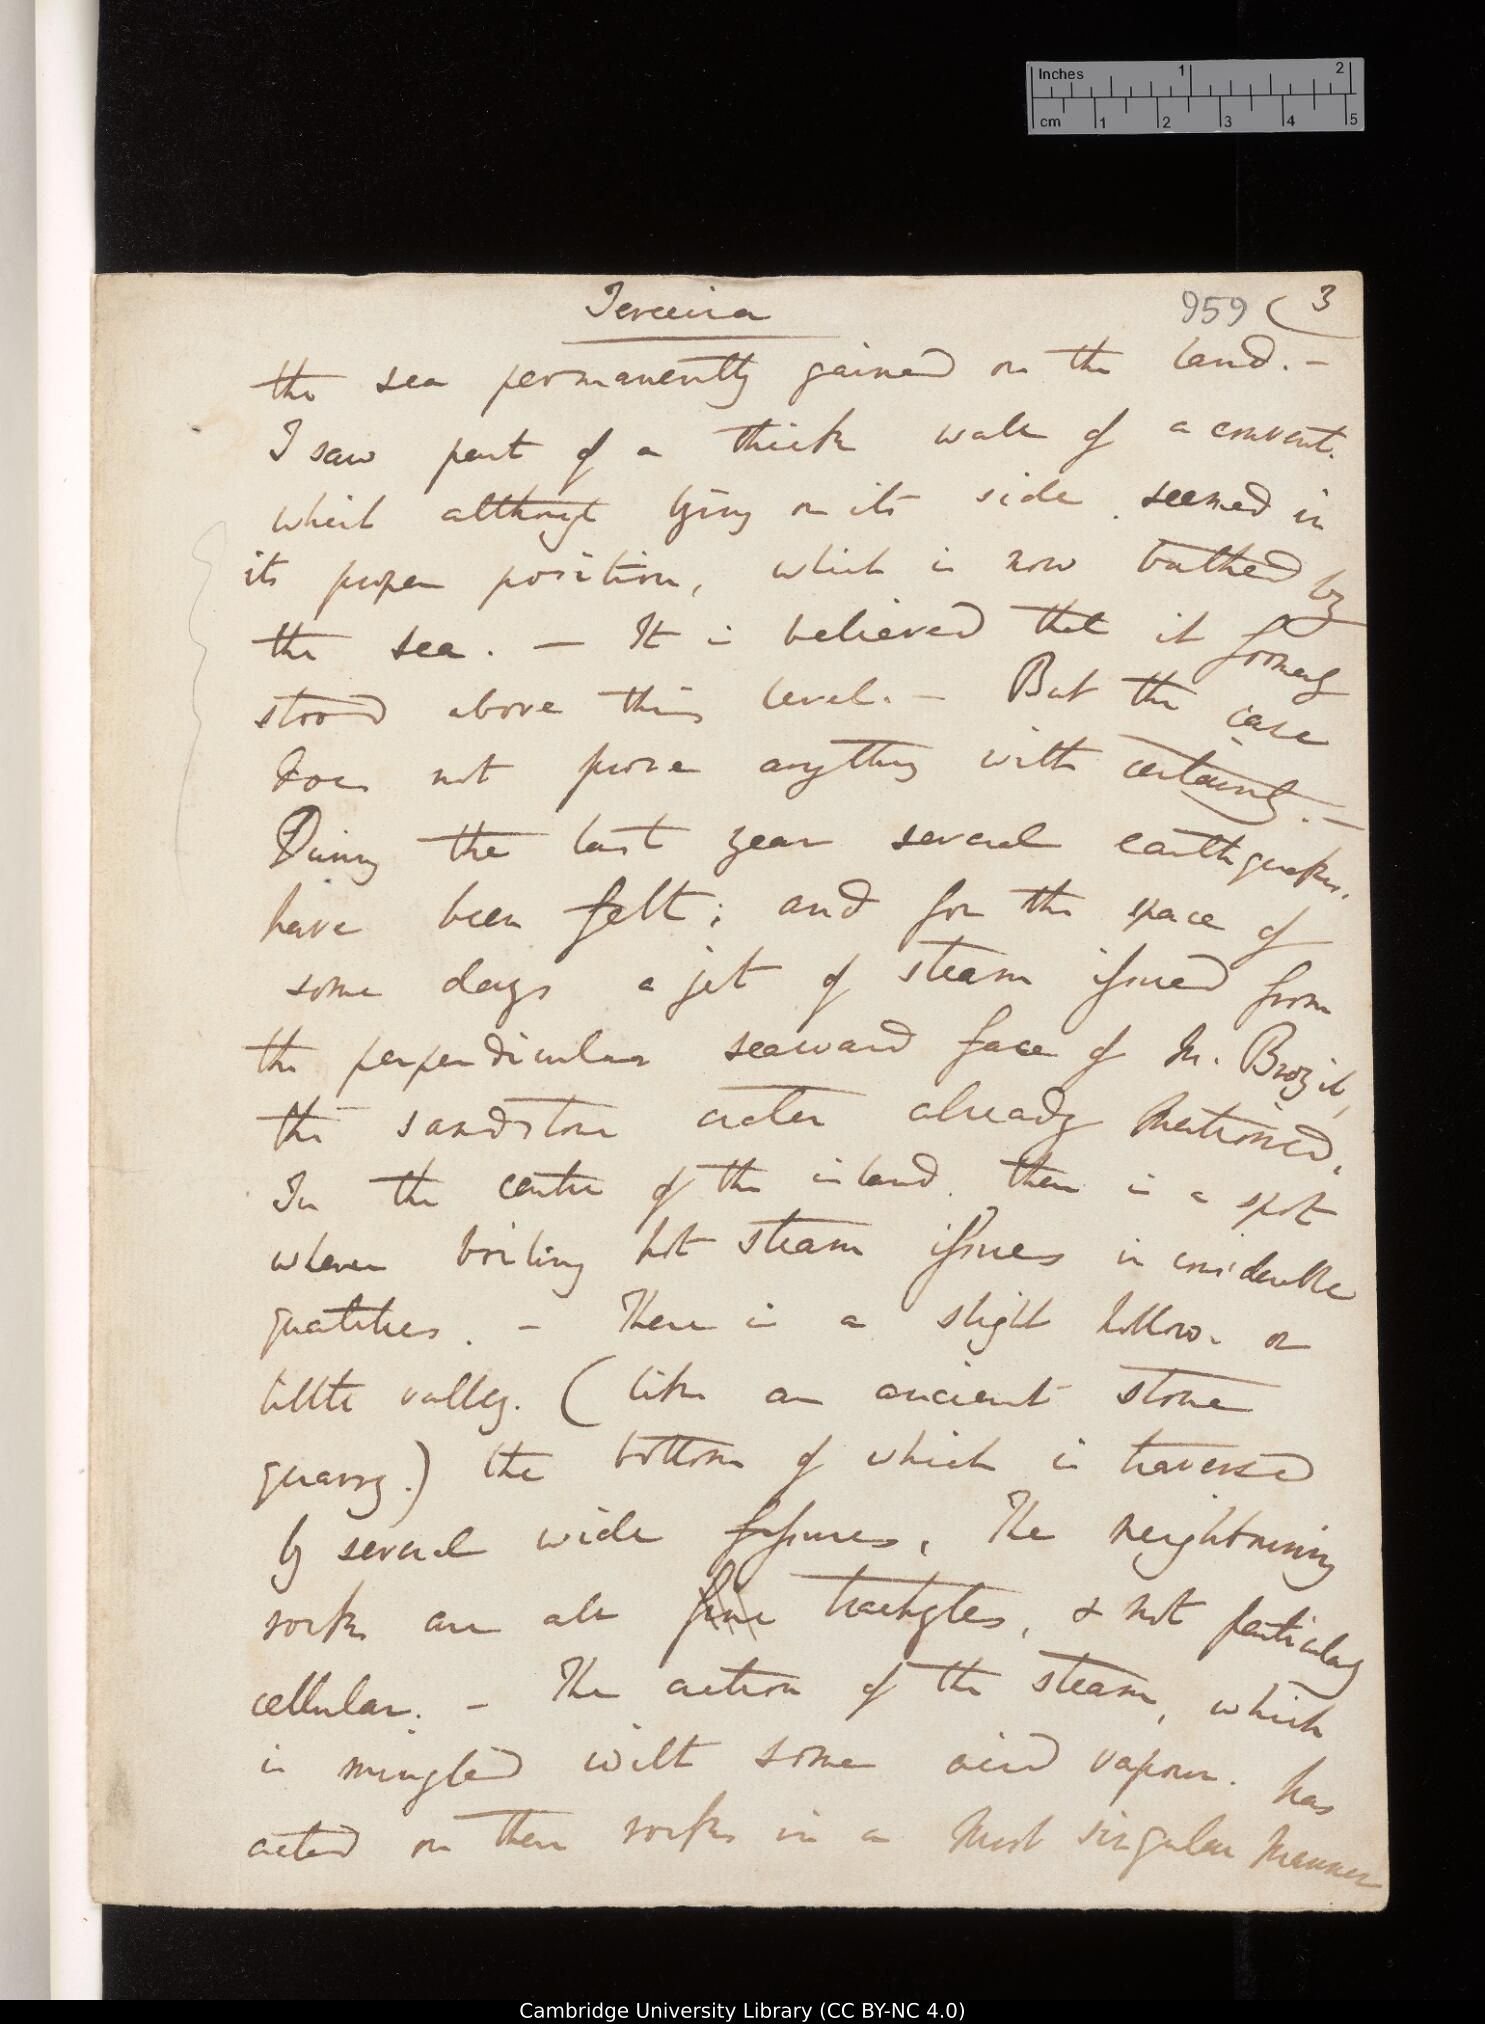 Inches 1 2
cm 1 2 3 4 5
Terceira 959 (3
the sea permanently gained on the land. –
I saw part of a thick wall of a convent.
which although lying on its side seemed in
its proper position, which is now bathed by
the sea. – It is believed that it formerly
stood above this level. – But the case
does not prove anything with certainty. –
During the last year several earthquakes.
have been felt; and for the space of
some days a jet of steam issued from
the perpendicular seaward face of M. Brazil,
the sandstone crater already mentioned.
In the centre of the island. there is a spot
where boiling hot steam issues in considerable
quantities. – There is a slight hollow or
little valley. (like an ancient stone
quarry.) the bottom of which is traversed
by several wide fissures. The neighbouring
rocks are all fine trachytes, & not particularly
cellular. – The action of the steam, which
is mingled with some acid vapour. has
acted on these rocks in a most singular manner
Cambridge University Library (CC BY-NC 4.0)